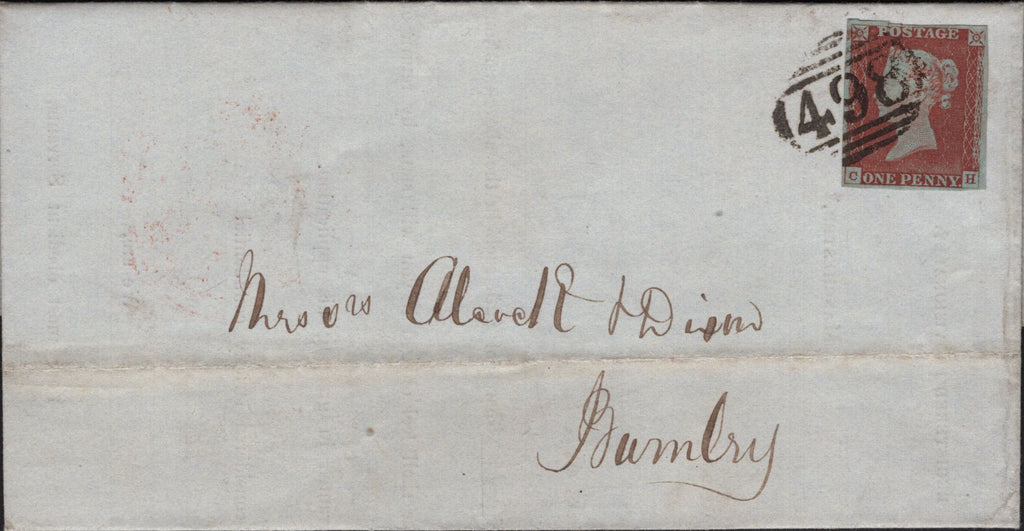 POSTAGE
498
C ONE PENNY. H
Messrs Alcock & Dixon
Burnley